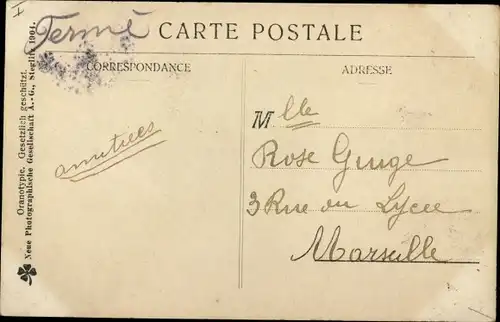 I
Fermé
CARTE POSTALE
CORRESPONDANCE
ADRESSE
Mlle
Rose Giuge
3 Rue du Lycee
Marseille
amitiees
Oranotypie. Gesetzlich geschützt.
Neue Photographische Gesellschaft A.-G., Steglitz 1904.